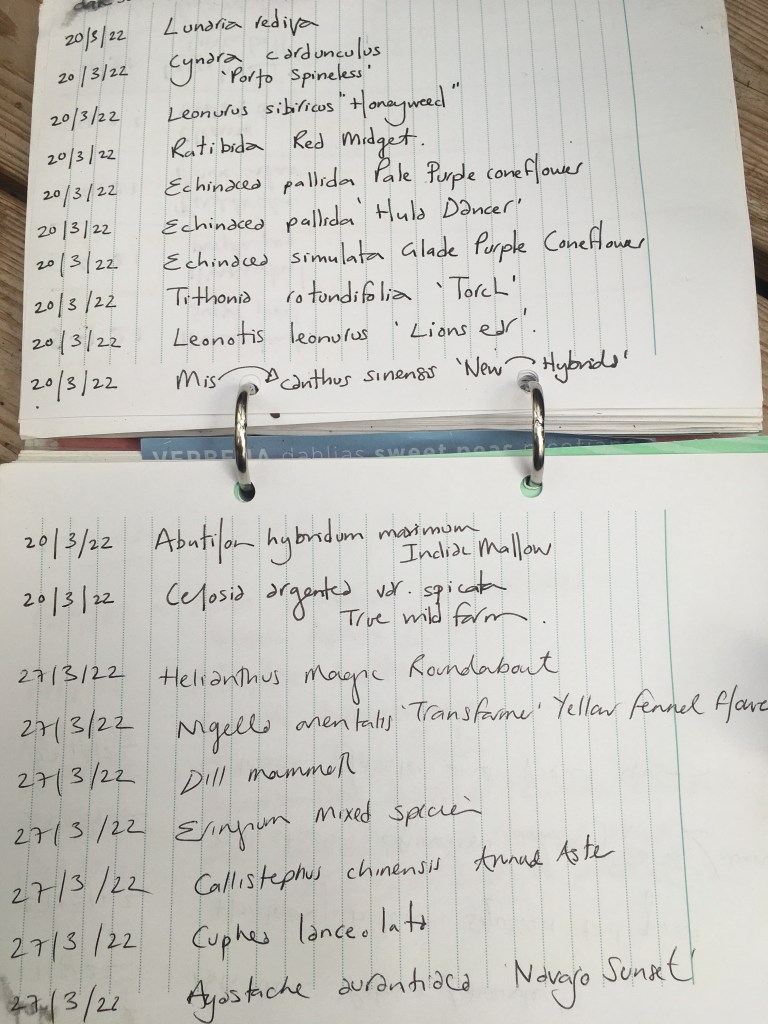 20/3/22 Lunaria rediva
20/3/22 Cynara cardunculus
'Porto Spineless'
20/3/22 Leonurus sibiricus "Honeyweed"
20/3/22 Ratibida Red Midget.
20/3/22 Echinacea pallida Pale Purple coneflower
20/3/22 Echinacea pallida 'Hula Dancer'
20/3/22 Echinacea simulata Glade Purple Coneflower
20/3/22 Tithonia rotundifolia 'Torch'
20/3/22 Leonotis leonurus 'Lions ear'.
20/3/22 Miscanthus sinensis 'New Hybrids'
VERBENA dahlias sweet peas
20/3/22 Abutilon hybridum maximum
Indian Mallow
20/3/22 Celosia argentea var. spicata
True wild form.
27/3/22 Helianthus Magic Roundabout
27/3/22 Nigella orientalis 'Transformer' Yellow fennel flower
27/3/22 Dill mammoth
27/3/22 Eringium Mixed species
27/3/22 Callistephus chinensis Annual Aster
27/3/22 Cuphea lanceolata
27/3/22 Agastache aurantiaca 'Navajo Sunset'